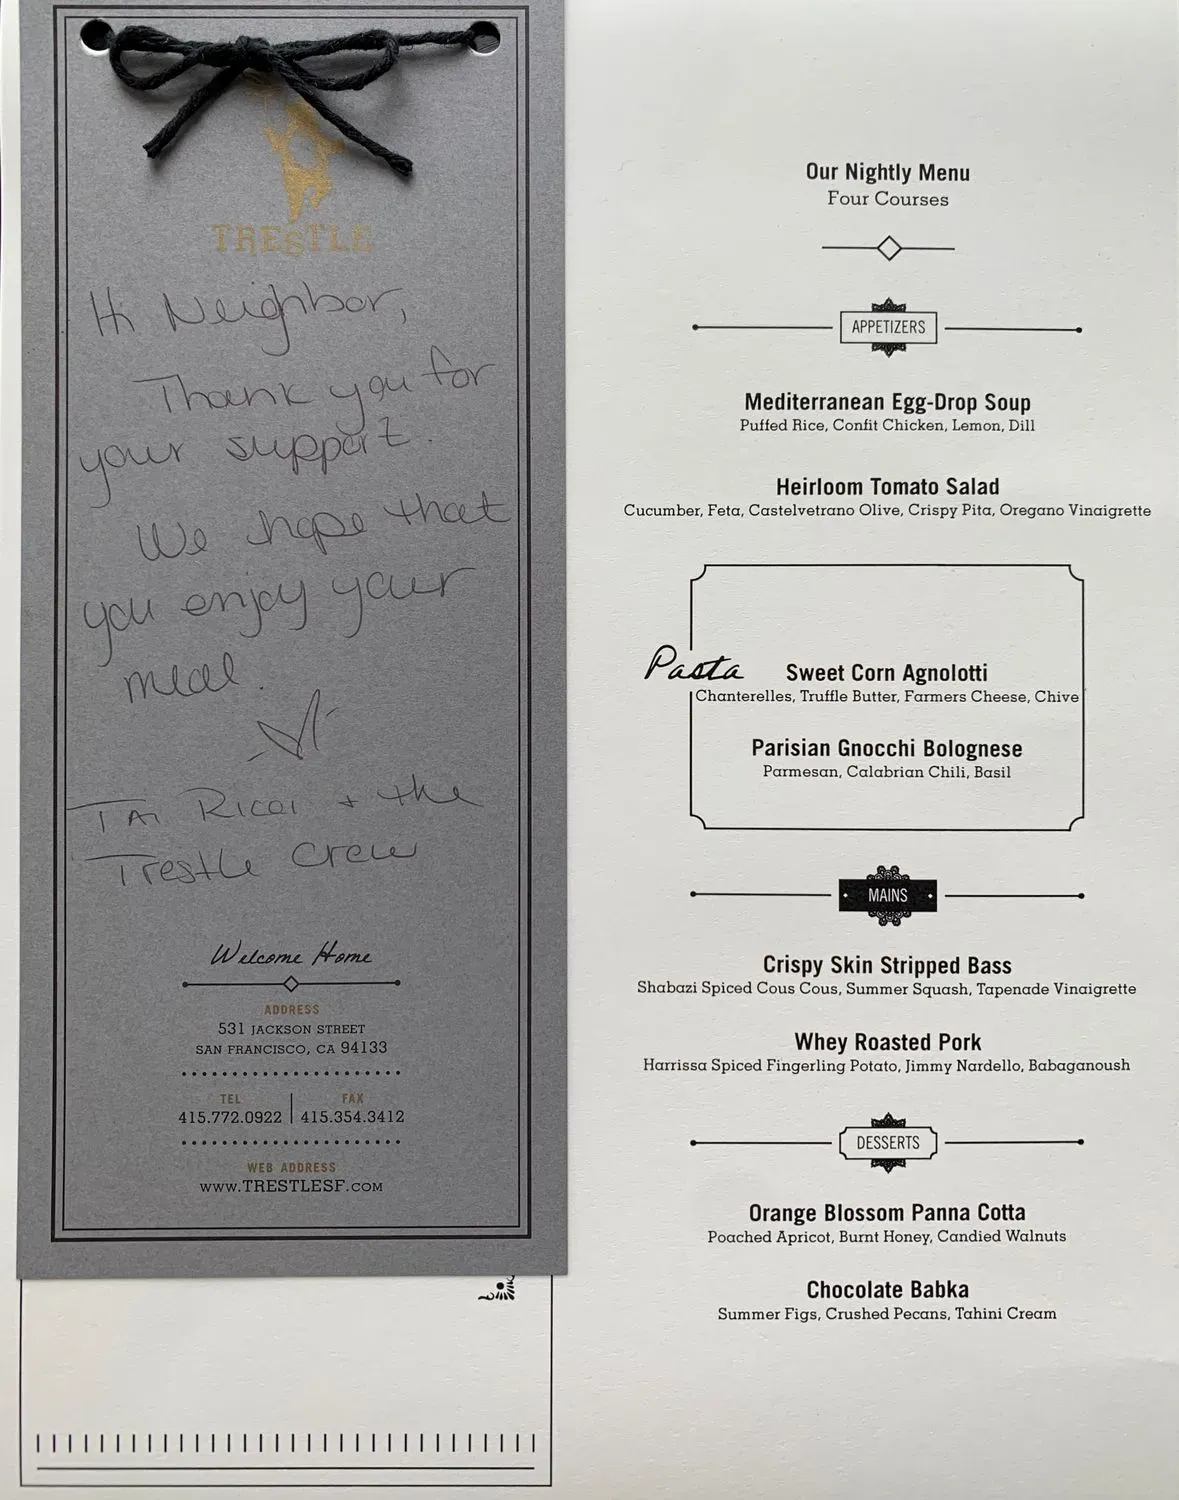 TRESTLE
Hi Neighbor,
Thank you for
your support.
We hope that
you enjoy your
meal.
Tai Ricci + the
Trestle Crew
Welcome Home
ADDRESS
531 JACKSON STREET
SAN FRANCISCO, CA 94133
TEL
415.772.0922
FAX
415.354.3412
WEB ADDRESS
WWW.TRESTLESF.COM
Our Nightly Menu
Four Courses
APPETIZERS
Mediterranean Egg-Drop Soup
Puffed Rice, Confit Chicken, Lemon, Dill
Heirloom Tomato Salad
Cucumber, Feta, Castelvetrano Olive, Crispy Pita, Oregano Vinaigrette
Pasta
Sweet Corn Agnolotti
Chanterelles, Truffle Butter, Farmers Cheese, Chive
Parisian Gnocchi Bolognese
Parmesan, Calabrian Chili, Basil
MAINS
Crispy Skin Stripped Bass
Shabazi Spiced Cous Cous, Summer Squash, Tapenade Vinaigrette
Whey Roasted Pork
Harrissa Spiced Fingerling Potato, Jimmy Nardello, Babaganoush
DESSERTS
Orange Blossom Panna Cotta
Poached Apricot, Burnt Honey, Candied Walnuts
Chocolate Babka
Summer Figs, Crushed Pecans, Tahini Cream